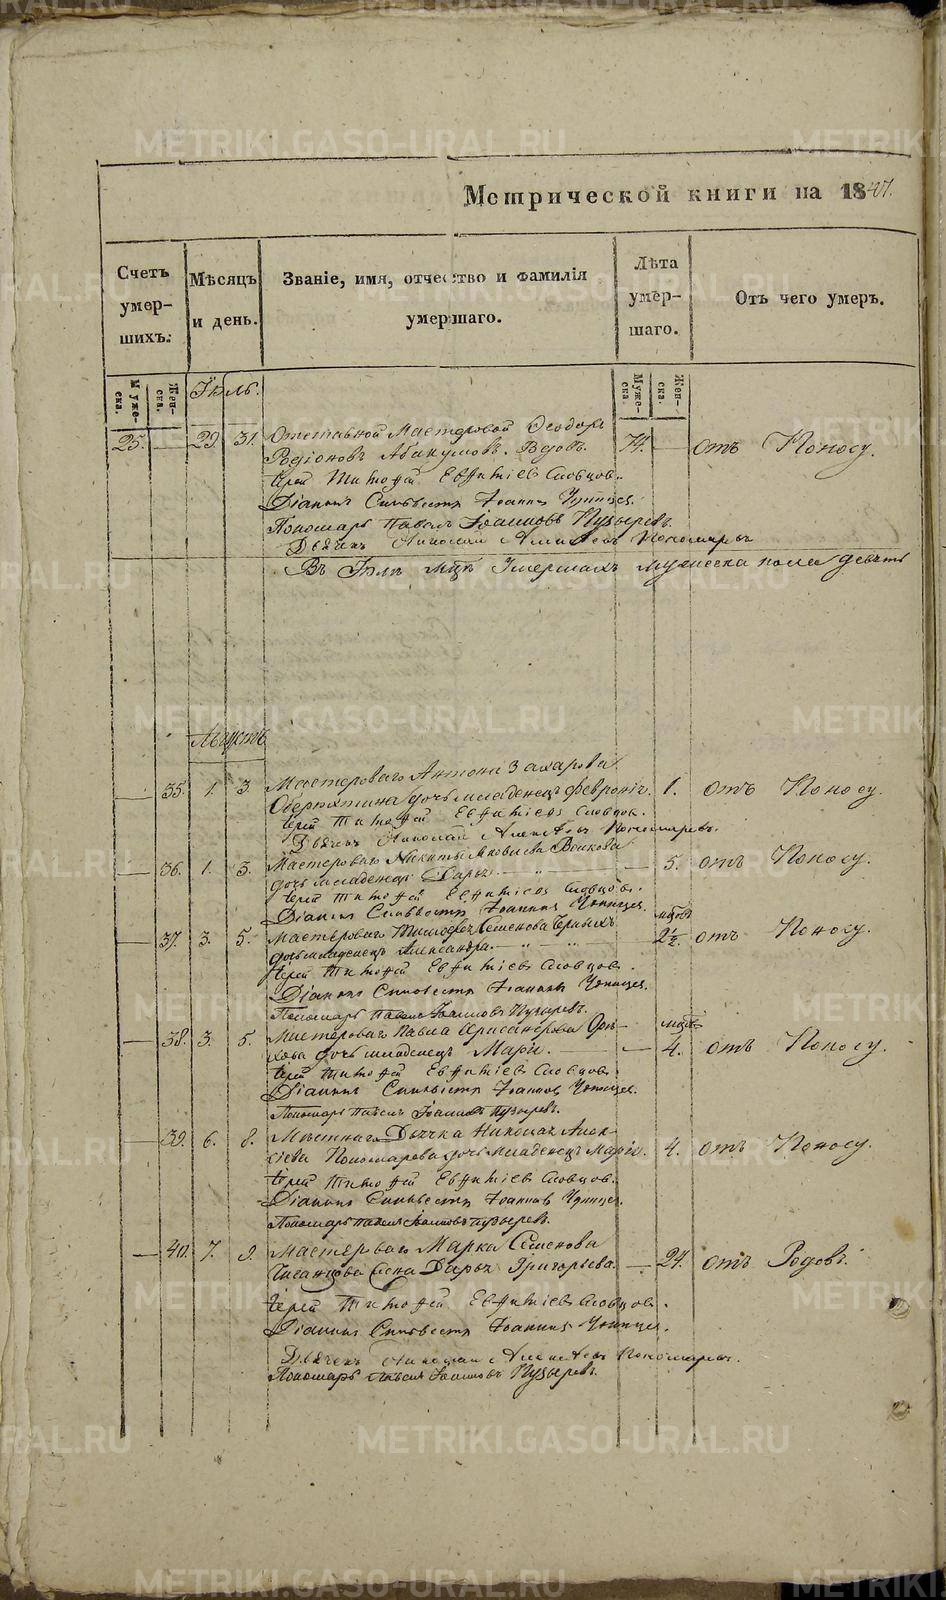 Метрической книги на 1847.
Счетъ умер-шихъ.
Мѣсяцъ и день.
Званіе, имя, отчество и фамилія умершаго.
Лѣта умер-шаго.
Отъ чего умеръ.
Муже-ска.
Жен-ска.
Муже-ска.
Жен-ска.
Іюль.
25. — 29. 31. Отставной Мастеровой Ѳеодоръ 74. — отъ Поносу.
Родіоновъ Абакумовъ. Вдовъ.
Іерей Тимоѳей Евѳиміевъ Словцов.
Діаконъ Сильвестръ Іоаннов
Пономарь Павелъ Іоанновъ Пузыревъ.
Дьячекъ Николай Алексѣевъ Пономаревъ
Въ Іюлѣ мцѣ Умершихъ мужеска пола девять
Августъ
— 35. 1. 3. Мастероваго Антона Захарова 1. отъ Поносу.
дочь младенецъ Февронія.
Іерей Тимоѳей Евѳиміевъ Словцов.
Дьячекъ Николай Алексѣевъ Пономаревъ.
— 36. 1. 3. Мастероваго Никиты Яковлева Волкова — 5. отъ Поносу.
дочь младенецъ Дарья. — „ —
Іерей Тимоѳей Евѳиміевъ Словцовъ.
Діаконъ Сильвестръ Іоаннов
— 37. 3. 5. Мастероваго Тимоѳея Семенова — мцов 2½. отъ Поносу.
дочь младенецъ Александра. — „ — „
Іерей Тимоѳей Евѳиміевъ Словцов.
Діаконъ Сильвестръ Іоаннов
Пономарь Павелъ Іоанновъ Пузыревъ.
— 38. 3. 5. Мастероваго Павла — мцов 4. отъ Поносу.
дочь младенецъ Марія. —
Іерей Тимоѳей Евѳиміевъ Словцов.
Діаконъ Сильвестръ Іоаннов
Пономарь Павелъ Іоанновъ Пузыревъ.
— 39. 6. 8. Мѣстнаго Дьячка Николая Алек- 4. отъ Поносу.
сѣева Пономарева дочь младенецъ Марія.
Іерей Тимоѳей Евѳиміевъ Словцов.
Діаконъ Сильвестръ Іоаннов
Пономарь Павелъ Іоанновъ Пузыревъ.
— 40. 7. 9. Мастероваго Марка Семенова — 24. отъ Родовъ.
жена Дарья Григорьева.
Іерей Тимоѳей Евѳиміевъ Словцов.
Діаконъ Сильвестръ Іоаннов
Дьячекъ Николай Алексѣевъ Пономаревъ.
Пономарь Павелъ Іоанновъ Пузыревъ.
METRIKI.GASO-URAL.RU